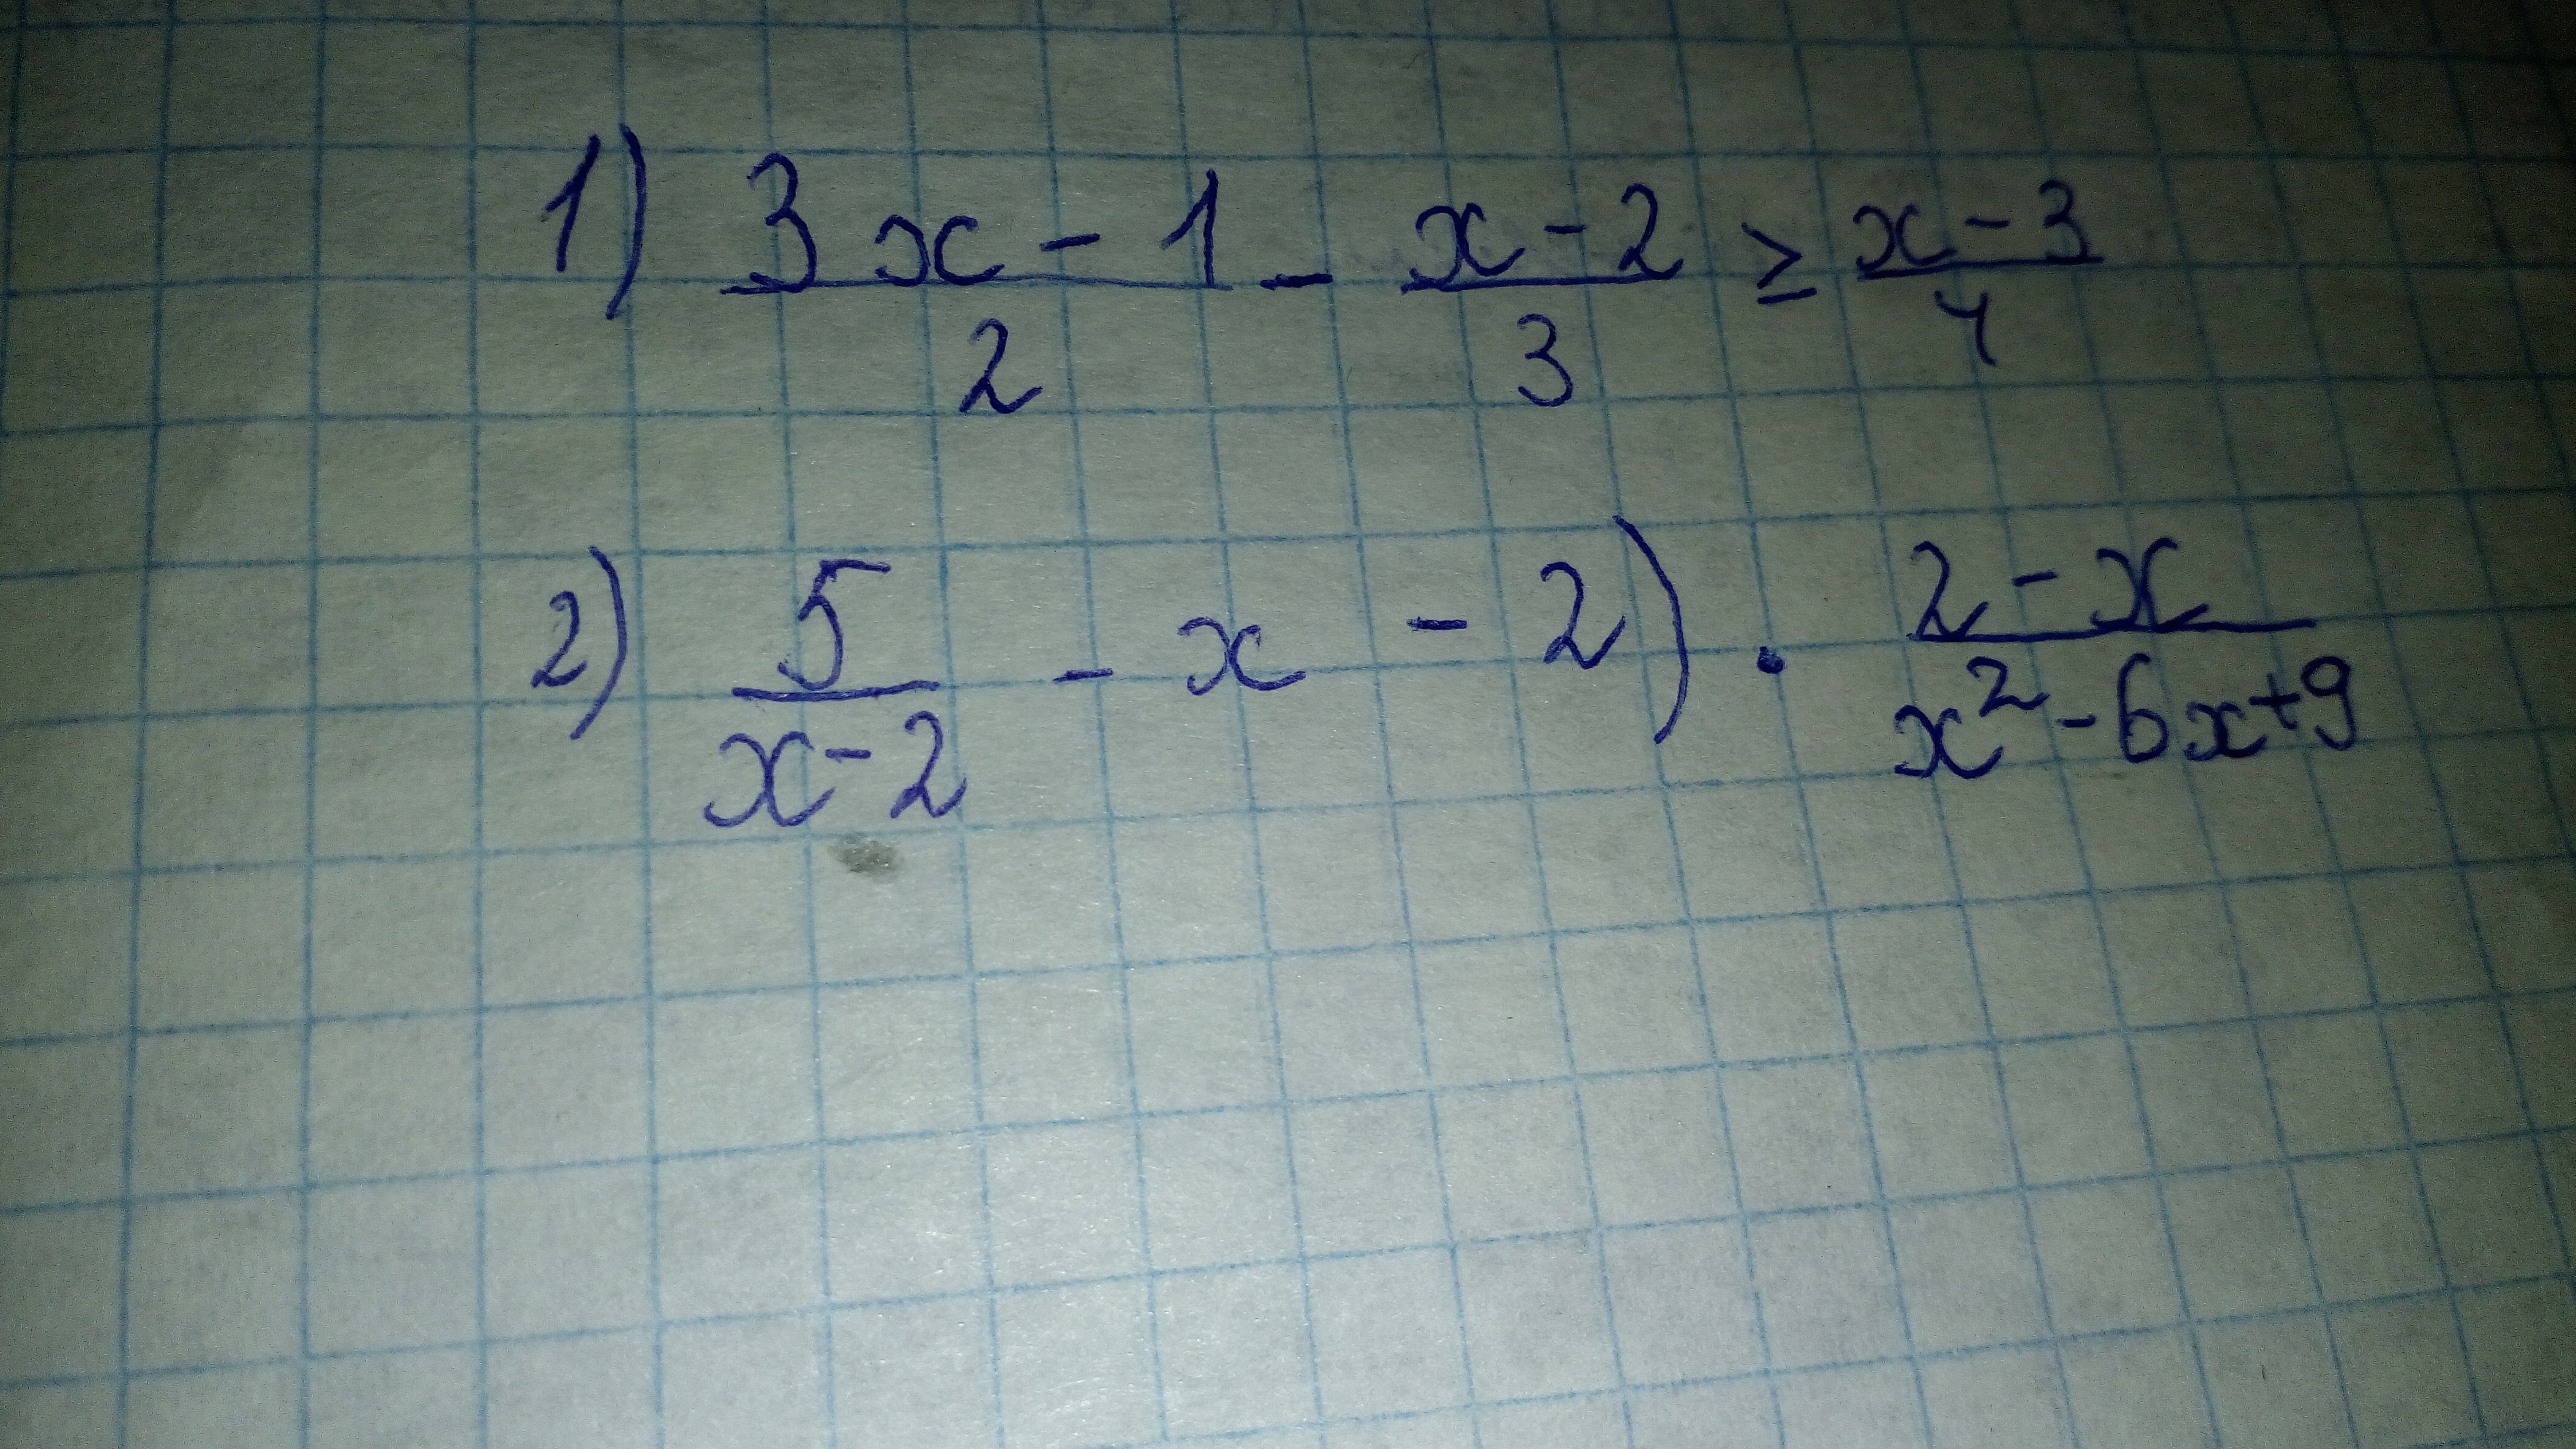 1) \frac{3x-1}{2} - \frac{x-2}{3} ≥ \frac{x-3}{4}
2) \frac{5}{x-2} - x - 2) · \frac{2-x}{x^2-6x+9}